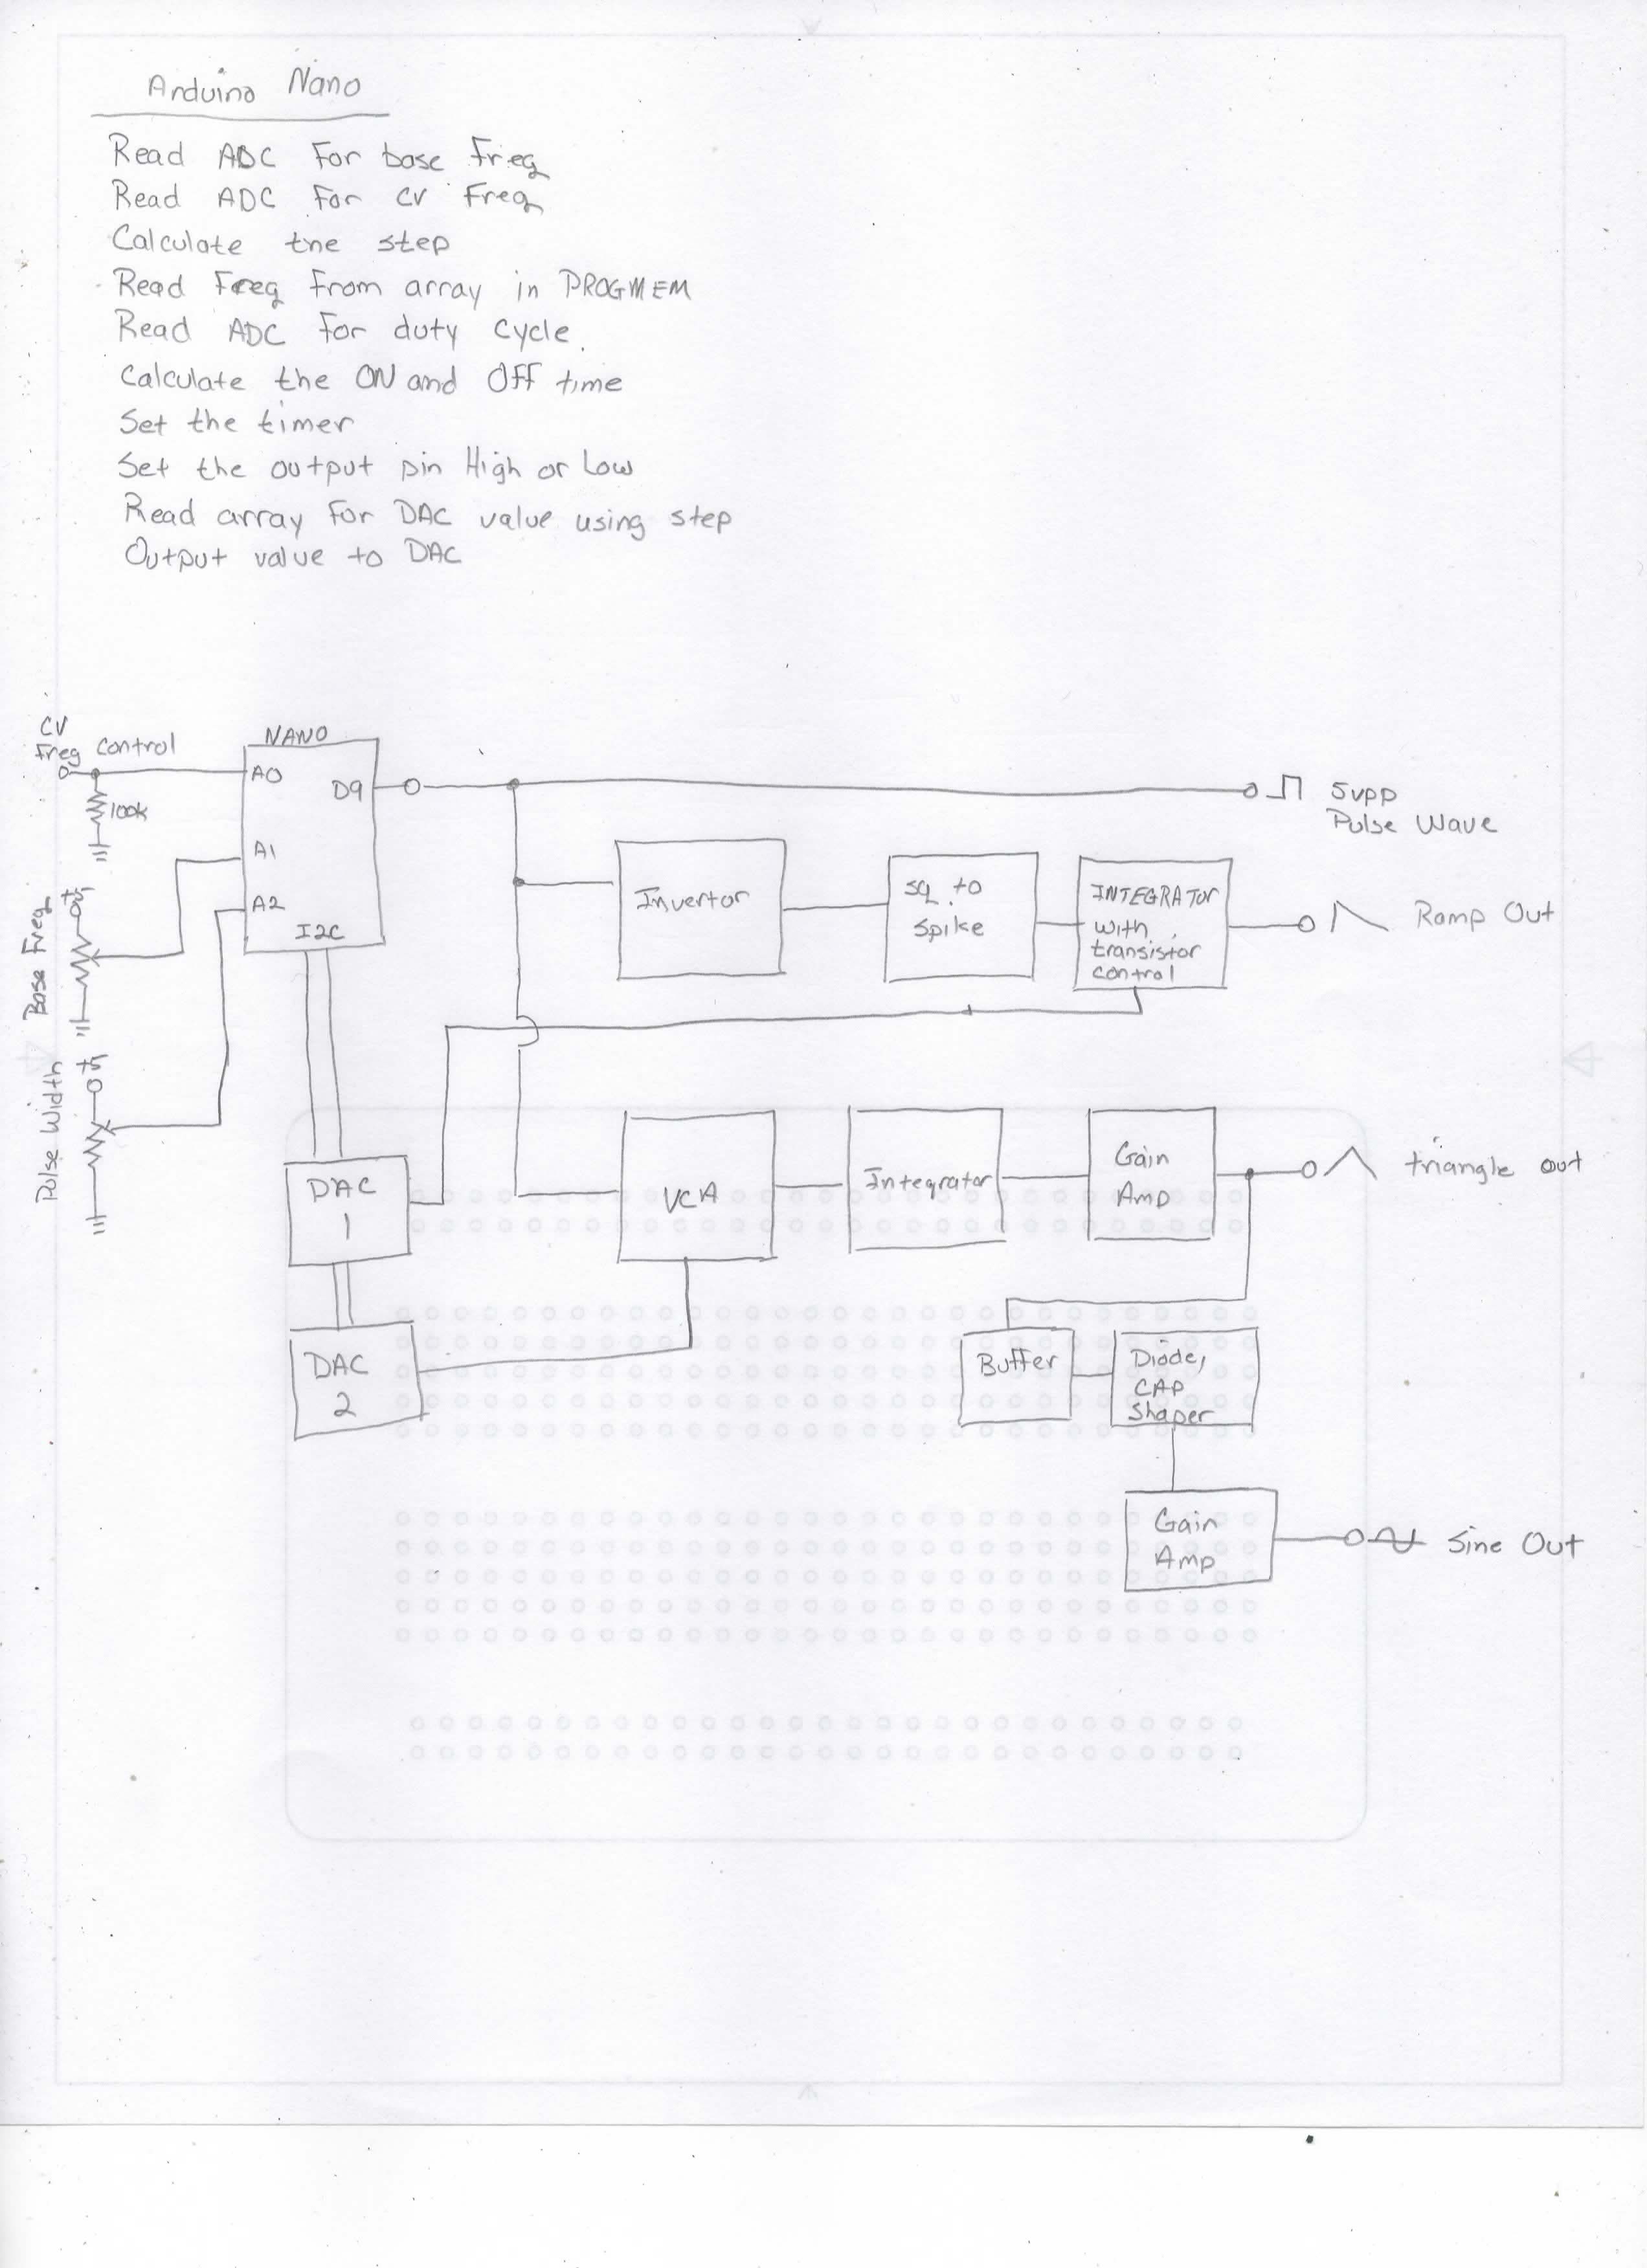 Arduino Nano
Read ADC For base Freq
Read ADC For CV Freq
Calculate the step
Read Freq From array in PROGMEM
Read ADC For duty cycle.
Calculate the ON and OFF time
Set the timer
Set the output pin High or Low
Read array For DAC value using step
Output value to DAC
CV
Freq control
100k
NANO
A0
D9
A1
A2
I2C
Base Freq
Pulse Width
5vpp
Pulse Wave
Invertor
sq. to
Spike
INTEGRATOR
with
transistor
control
Ramp Out
DAC
1
VCA
Integrator
Gain
Amp
triangle out
DAC
2
Buffer
Diode,
CAP
Shaper
Gain
Amp
Sine Out